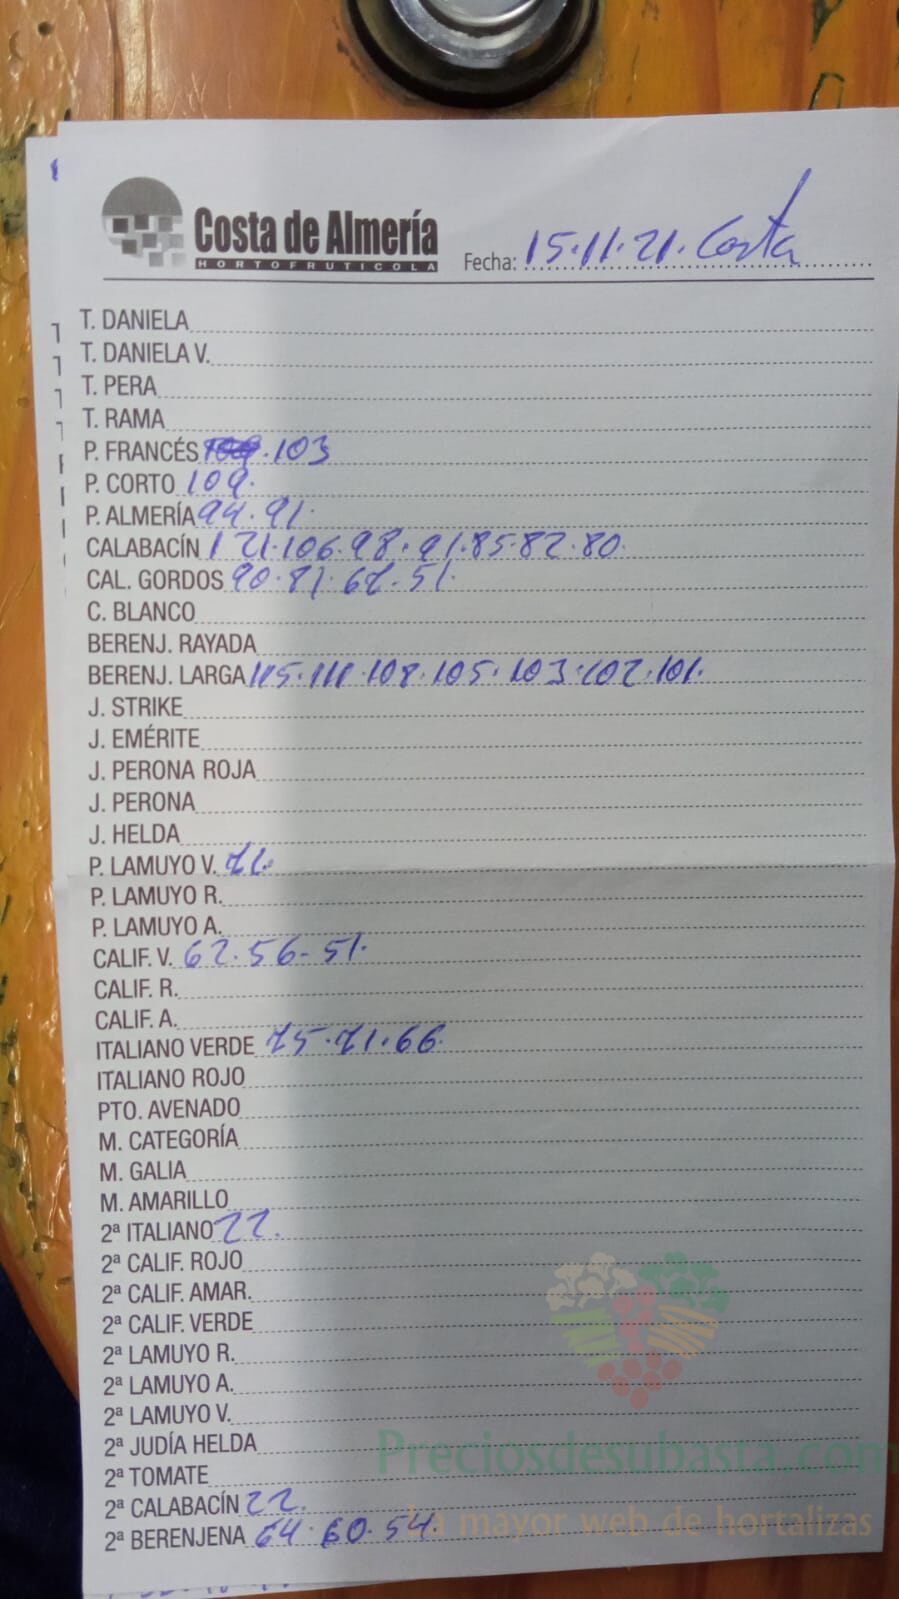 Costa de Almería
HORTOFRUTICOLA
Fecha: 15.11.21. Costa
T. DANIELA
T. DANIELA V.
T. PERA
T. RAMA
P. FRANCÉS 103
P. CORTO 109.
P. ALMERÍA 94.91.
CALABACÍN 121.106.98.91.85.82.80.
CAL. GORDOS 90.81.62.51.
C. BLANCO
BERENJ. RAYADA
BERENJ. LARGA 115.111.108.105.103.102.101.
J. STRIKE
J. EMÉRITE
J. PERONA ROJA
J. PERONA
J. HELDA
P. LAMUYO V. 71.
P. LAMUYO R.
P. LAMUYO A.
CALIF. V. 62.56-51.
CALIF. R.
CALIF. A.
ITALIANO VERDE 75.71.66.
ITALIANO ROJO
PTO. AVENADO
M. CATEGORÍA
M. GALIA
M. AMARILLO
2ª ITALIANO 22.
2ª CALIF. ROJO
2ª CALIF. AMAR.
2ª CALIF. VERDE
2ª LAMUYO R.
2ª LAMUYO A.
2ª LAMUYO V.
2ª JUDÍA HELDA
Preciosdesubasta.com
2ª TOMATE
2ª CALABACÍN 22.
La mayor web de hortalizas
2ª BERENJENA 64.60.54.